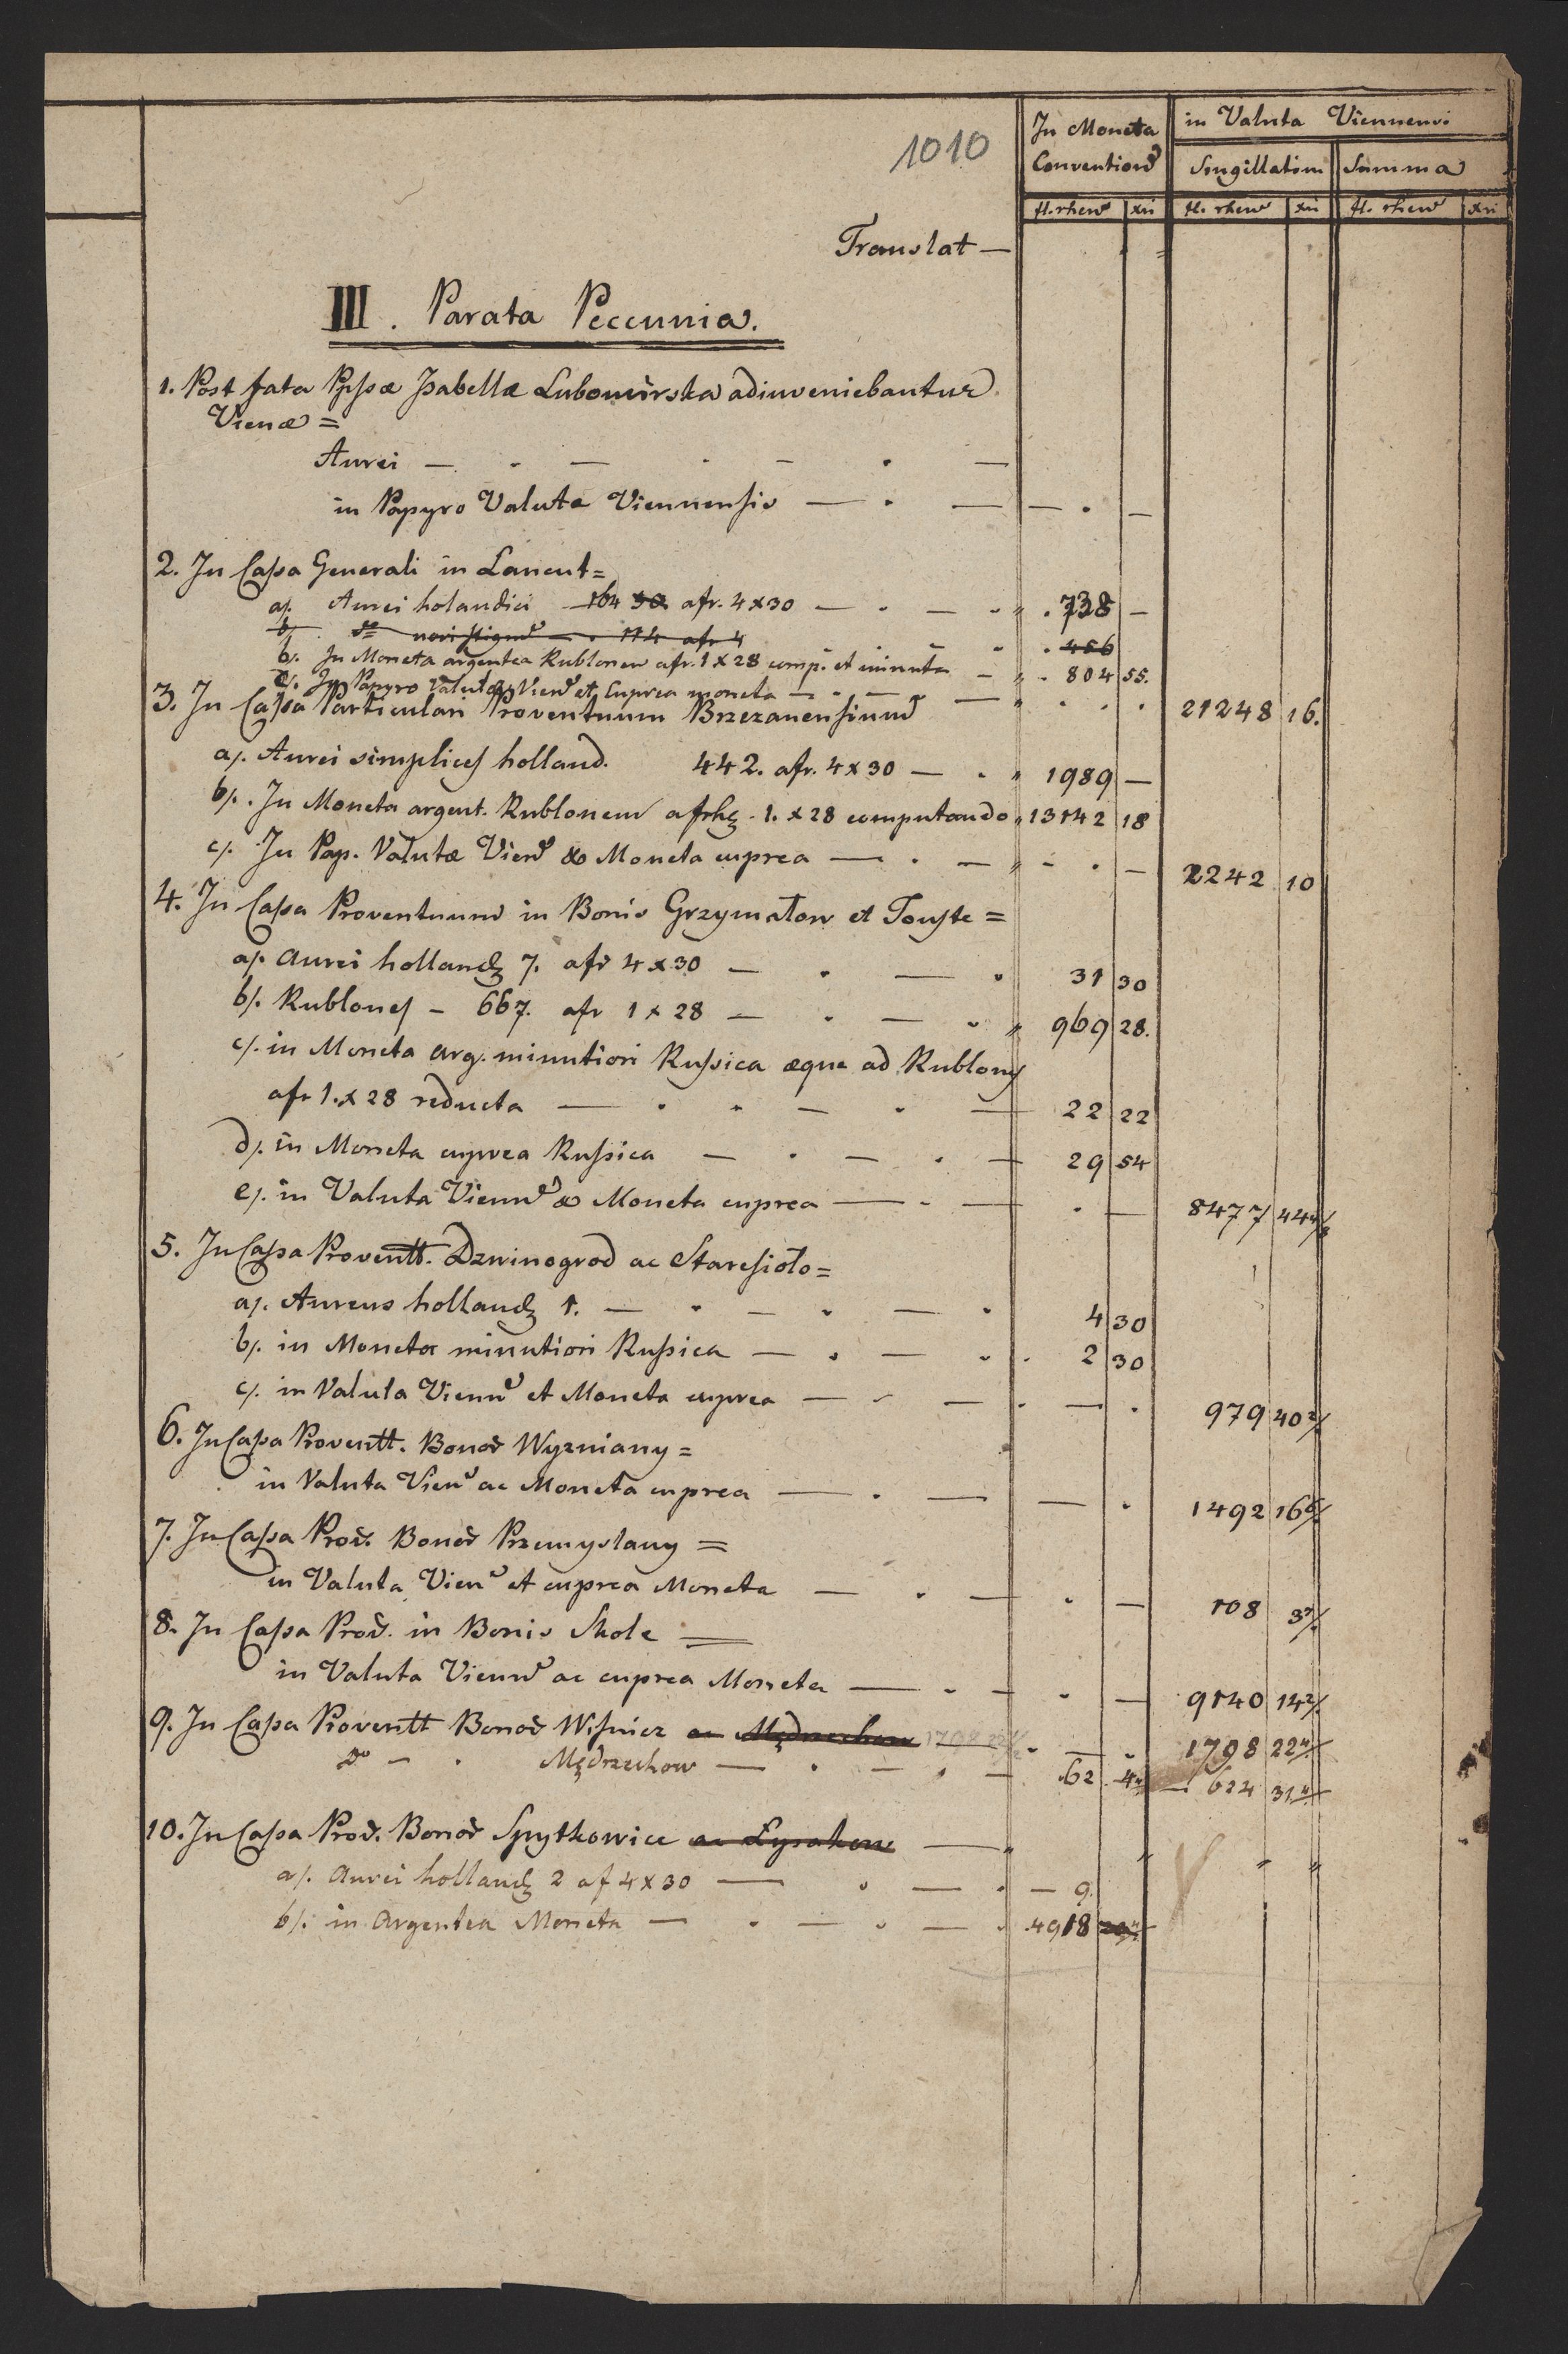 1010
In Moneta in Valuta Viennensi
Convention Singillatim Summa
fl. rhen xri fl. rhen xri fl. rhen xri
Translat —
III. Parata Peccunia.
1. Post fata Ppssæ Isabellæ Lubomirska adinveniebantur
Vienæ =
Aurei — - — - — - —
in Papyro Valutæ Viennensis — - — — - —
2. In Cassa Generali in Lancut =
a/. Aurei holandici 164 afr. 4 x 30 — - — - 738 —
b/. 114 afr 4 - 456
b/. In Moneta argentea Rublonem afr. 1 x 28 comp. et minuta — 804 55.
c/. In Papyro Valutæ Vien et Cuprea moneta — - — 21248 16.
3. In Cassa Particulari Proventuum Brzezanensium
a/. Aurei simplices holland. 442. afr. 4 x 30 — - 1989 —
b/. In Moneta argent. Rublonem afrh 1. x 28 computando 13142 18
c/. In Pap. Valutæ Vien & Moneta cuprea — - — - — 2242 10
4. In Cassa Proventuum in Bonis Grzymałow et Touste =
a/. Aurei holland 7. afr 4 x 30 — - — - 31 30
b/. Rublones – 667. afr 1 x 28 — - — - 969 28.
c/. in Moneta arg. minutiori Russica æque ad Rublones
afr 1. x 28 reducta — - - — - — 22 22
d/. in Moneta cuprea Russica — - — - — 29 54
e/. in Valuta Vienn & Moneta cuprea — - — - — 8477 44
5. In Cassa Proventt. Dzwinogrod ac Staresioło =
a/. Aureus holland 1. — - — - — - 4 30
b/. in Moneta minutiori Russica — - — - 2 30
c/. in Valuta Vienn et Moneta cuprea — - — - — - 979 40
6. In Cassa Proventt. Bonor Wyzniany =
in Valuta Vien ac Moneta cuprea — - — — - 1492 16
7. In Cassa Prov. Bonor Przemyslany =
in Valuta Vien et cuprea Moneta — - — - — 108 3
8. In Cassa Prov. in Bonis Skole =
in Valuta Vienn ac cuprea Moneta — - — - — 9140 14
9. In Cassa Proventt Bonor Wisnicz ac Mędrzechow 1798 22 — - — - 1798 22
Do — - Mędrzechow — - — - — 62 4 — 624 31
10. In Cassa Prov. Bonor Spytkowice ac Łysakow —
a/. Aurei holland 2 af 4 x 30 — - — - — 9.
b/. in Argentea Moneta — - — - — - 4918